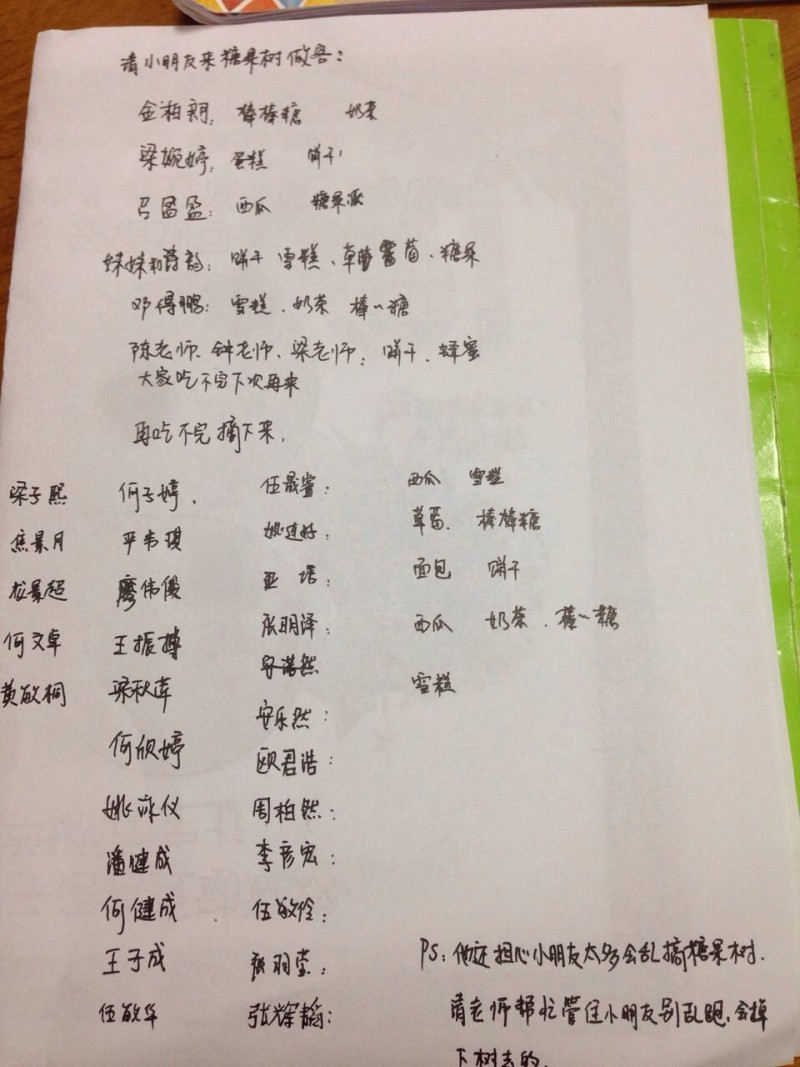 请小朋友来糖果树做客：
金湘朗：棒棒糖 奶茶
梁婉婷：蛋糕 饼干
吕盈盈：西瓜 糖果派
妹妹和诗韵：饼干 雪糕、草莓、糖果
邓得鹏：雪糕、奶茶 棒〃糖
陈老师、钟老师、梁老师：饼干、蜂蜜
大家吃不完下次再来
再吃不完摘下来.
梁子熙 何子婷、 伍晟睿： 西瓜 雪糕
焦景月 平韦琪 姚连好： 草莓、棒棒糖
龙景超 廖伟俊 亚培： 面包 饼干
何文卓 王振搏 张明泽： 西瓜 奶茶、棒〃糖
黄敏桐 梁秋萍 安浩然 雪糕
安乐然：
何欣婷 欧君浩：
姚詠仪 周柏然：
潘健成 李彦宏：
何健成 伍敏伶：
王子成 张羽莹：
伍敏华 张辉韬：
PS：他还担心小朋友太多会乱摘糖果树.
请老师帮忙管住小朋友别乱跑，会掉
下树去的.